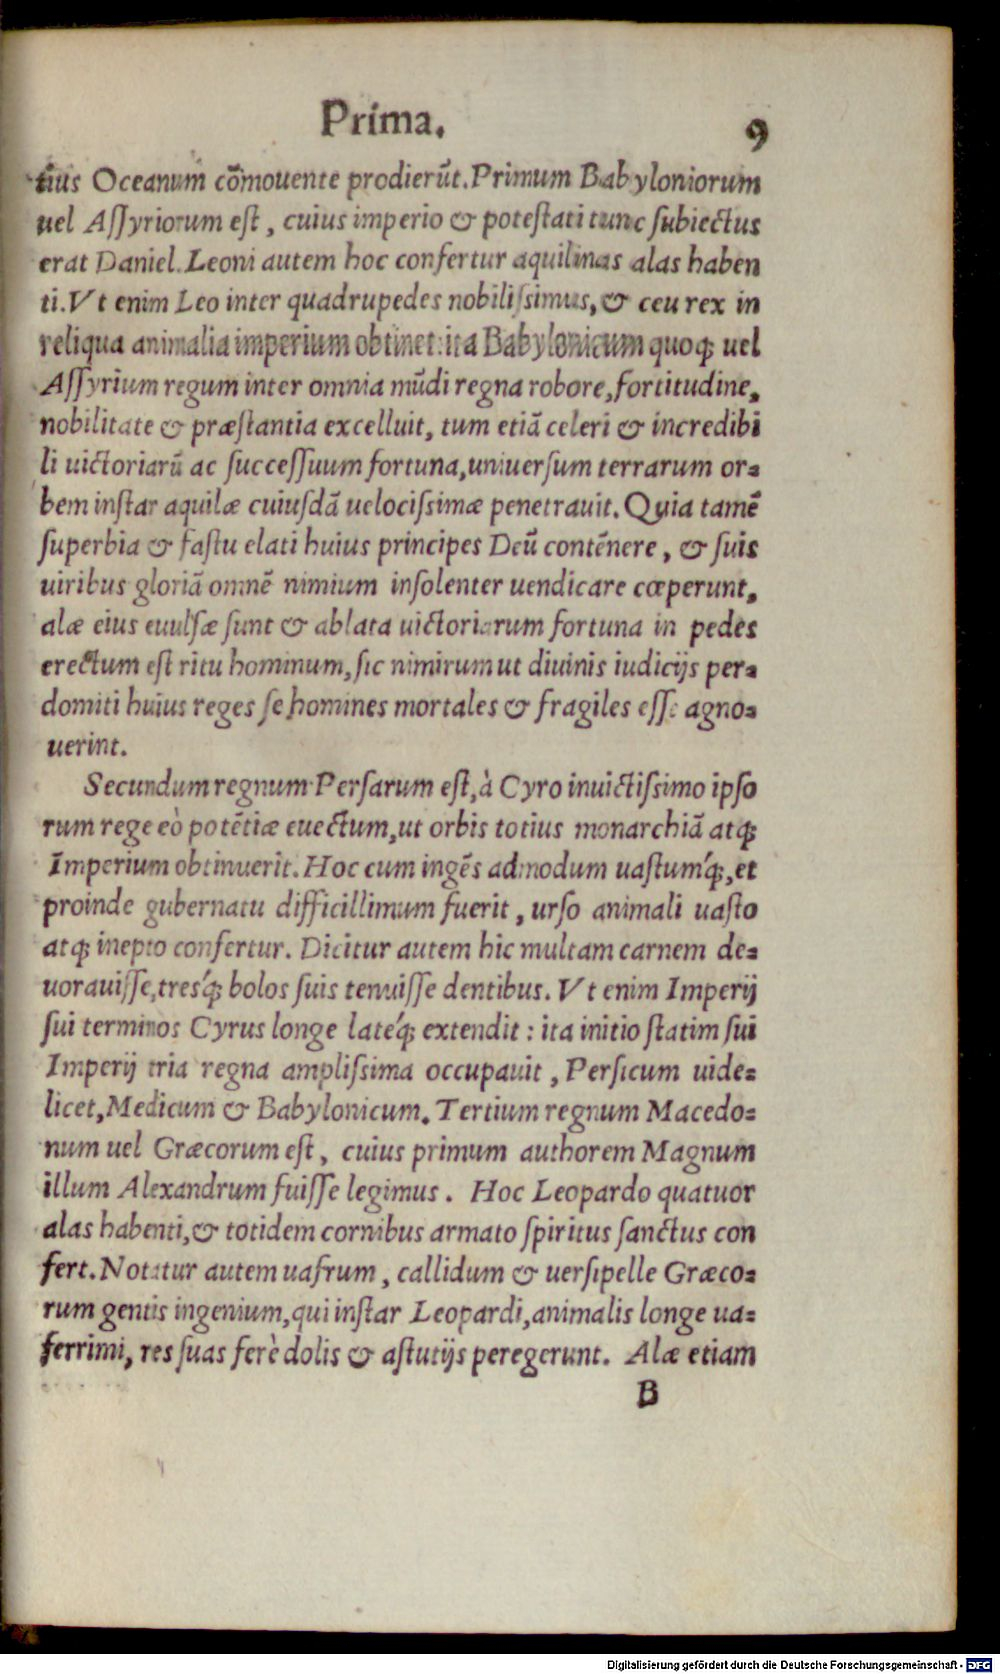 Prima. 9
tius Oceanum cõmouente prodierũt. Primum Babyloniorum
uel Aſſyriorum eſt, cuius imperio & poteſtati tunc ſubiectus
erat Daniel. Leoni autem hoc confertur aquilinas alas haben
ti. Vt enim Leo inter quadrupedes nobiliſsimus, & ceu rex in
reliqua animalia imperium obtinet: ita Babylonicum quoqꝫ uel
Aſſyrium regum inter omnia mũdi regna robore, fortitudine,
nobilitate & præſtantia excelluit, tum etiã celeri & incredibi
li uictoriarũ ac ſucceſſuum fortuna, uniuerſum terrarum or⸗
bem inſtar aquilæ cuiuſdã uelociſsimæ penetrauit. Quia tamẽ
ſuperbia & faſtu elati huius principes Deũ contẽnere, & ſuis
uiribus gloriã omnẽ nimium inſolenter uendicare cœperunt,
alæ eius euulſæ ſunt & ablata uictoriarum fortuna in pedes
erectum eſt ritu hominum, ſic nimirum ut diuinis iudicijs per⸗
domiti huius reges ſe homines mortales & fragiles eſſe agno⸗
uerint.
Secundum regnum Perſarum eſt, à Cyro inuictiſsimo ipſo
rum rege eò potẽtiæ euectum, ut orbis totius monarchiã atqꝫ
Imperium obtinuerit. Hoc cum ingẽs admodum uaſtum'qꝫ, et
proinde gubernatu difficillimum fuerit, urſo animali uaſto
atqꝫ inepto confertur. Dicitur autem hic multam carnem de⸗
uorauiſſe, tres'qꝫ bolos ſuis tenuiſſe dentibus. Vt enim Imperij
ſui terminos Cyrus longe late'qꝫ extendit: ita initio ſtatim ſui
Imperij tria regna ampliſsima occupauit, Perſicum uide⸗
licet, Medicum & Babylonicum. Tertium regnum Macedo⸗
num uel Græcorum eſt, cuius primum authorem Magnum
illum Alexandrum fuiſſe legimus. Hoc Leopardo quatuor
alas habenti, & totidem cornibus armato ſpiritus ſanctus con
fert. Notatur autem uafrum, callidum & uerſipelle Græco⸗
rum gentis ingenium, qui inſtar Leopardi, animalis longe ua⸗
ferrimi, res ſuas ferè dolis & aſtutijs peregerunt. Alæ etiam
B
Digitalisierung gefördert durch die Deutsche Forschungsgemeinschaft - DFG